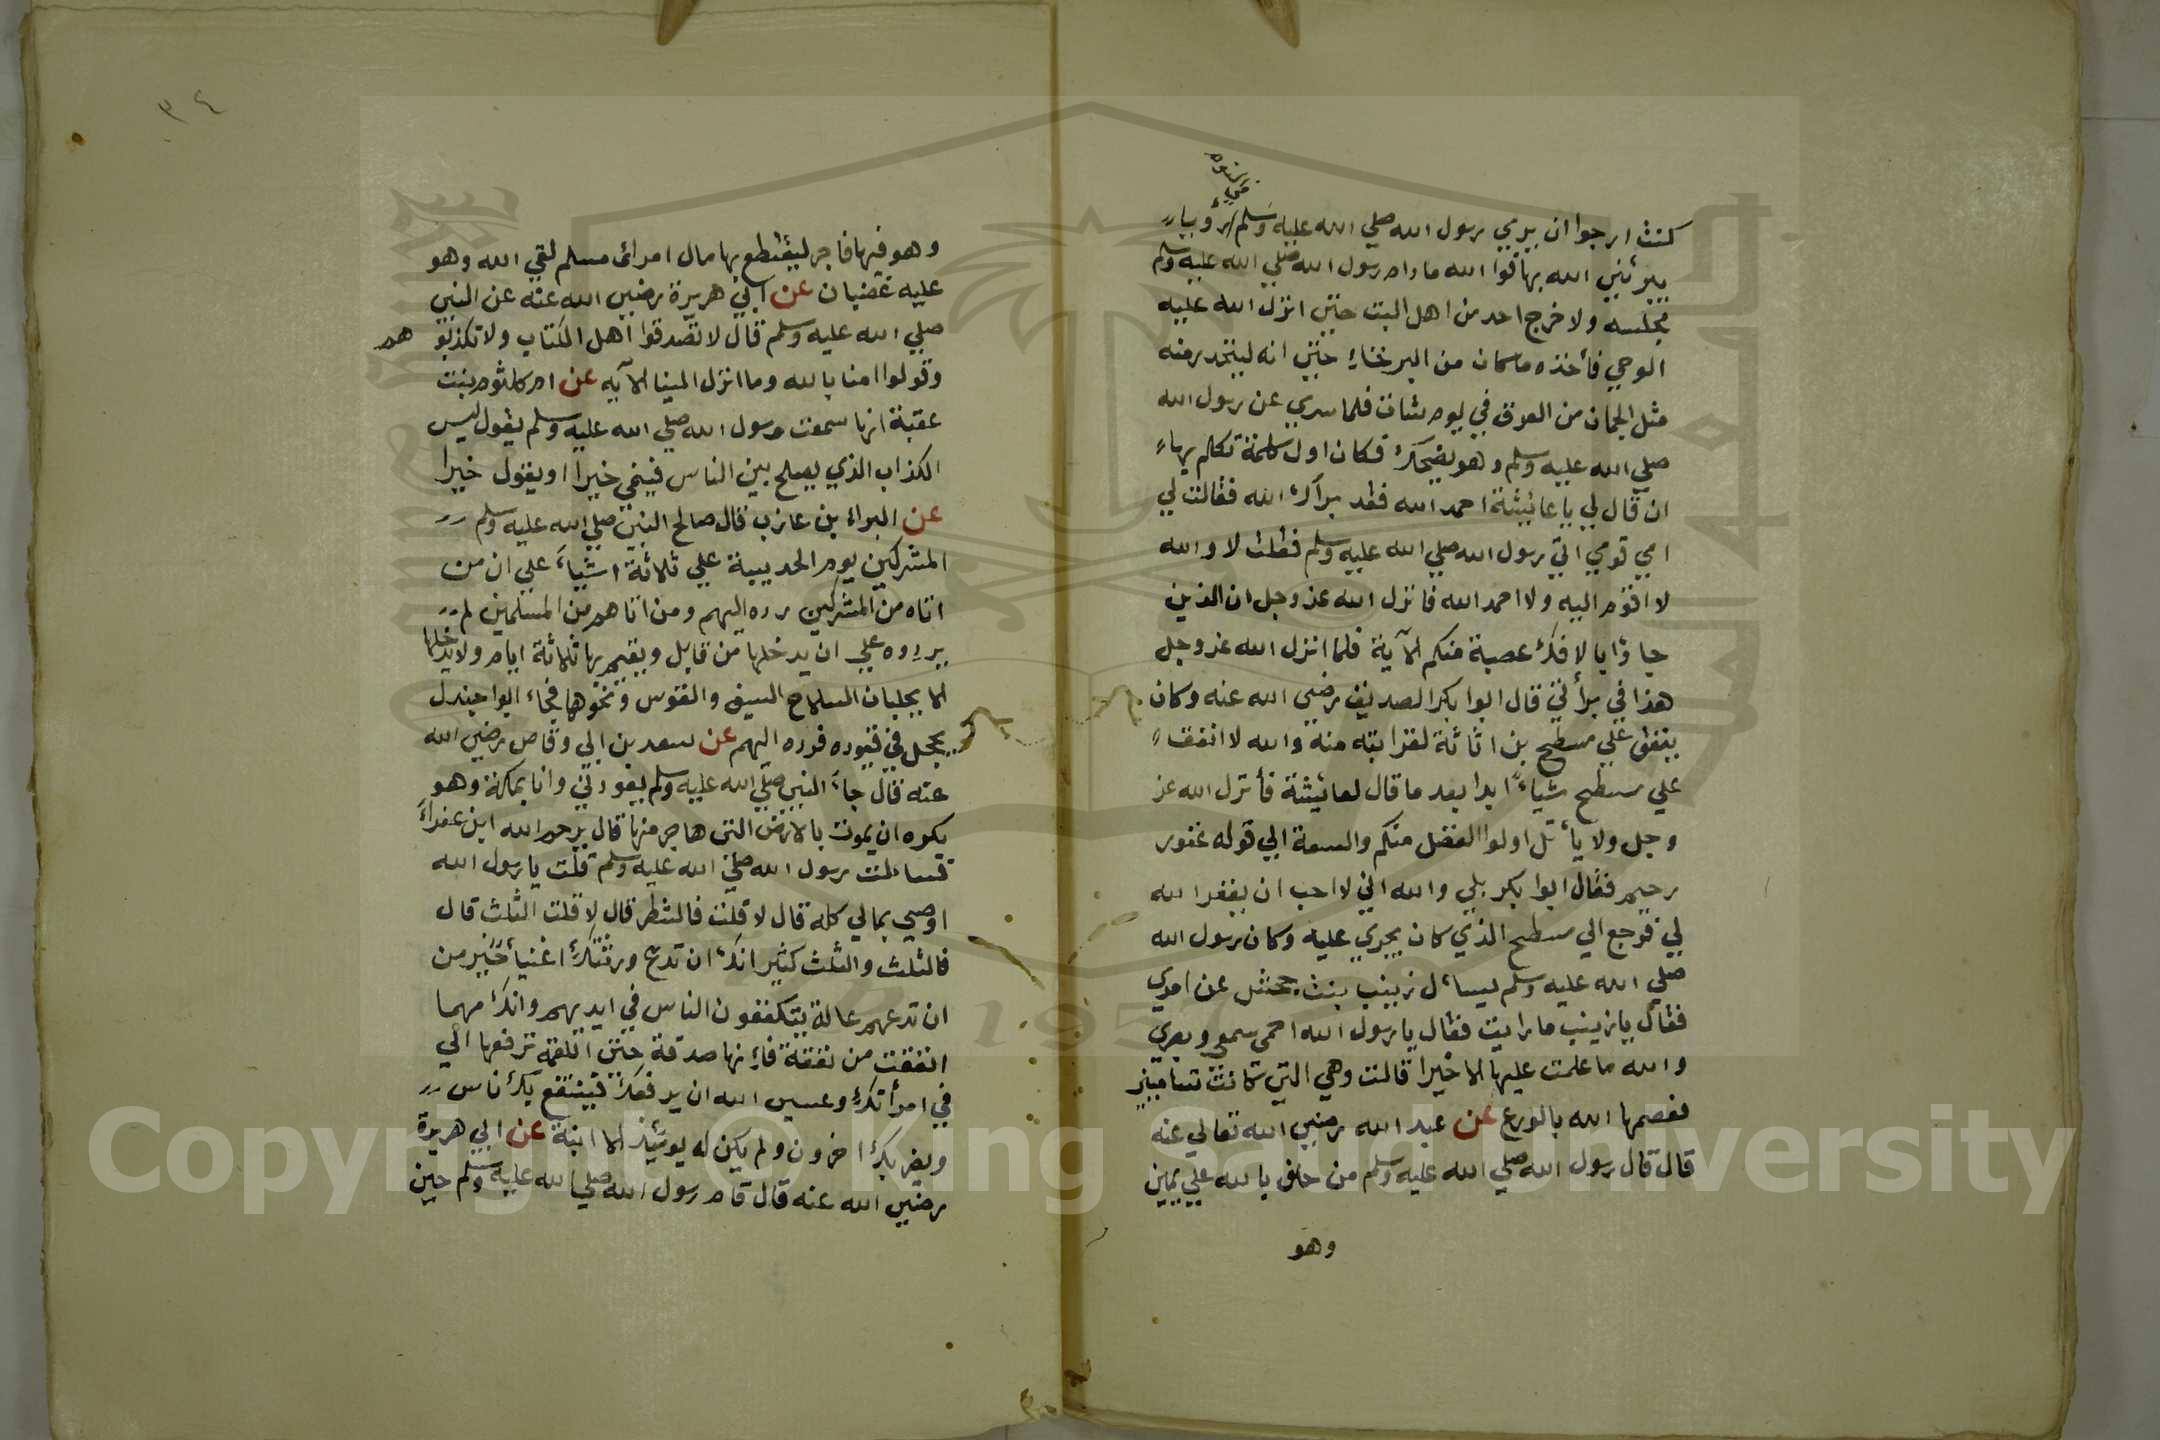 في نومه
كنت ارجوا ان يري رسول الله صلي الله عليه وسلم رؤيا
يبرئني الله بها فوا الله ما رام رسول الله صلي الله عليه وسلم
مجلسه ولا خرج احد من اهل البيت حتي انزل الله عليه
الوحي فأخذه ما كان من البرحاء حتي انه ليتحدر منه
مثل الجمان من العرق في يوم شات فلما سري عن رسول الله
صلي الله عليه وسلم وهو يضحك فكان اول كلمة تكلم بهاء
ان قال لي يا عائيشة احمد الله فقد برآك الله فقالت لي
امي قومي الي رسول الله صلي الله عليه وسلم فقلت لا والله
لا اقوم اليه ولا احمد الله فانزل الله عز وجل ان الذين
جاؤا بالافك عصبة منكم الآية فلما انزل الله عز وجل
هذا في برأتي قال ابوا بكر الصديق رضي الله عنه وكان
ينفق علي مسطح بن اثاثة لقرابته منه والله لا انفق
علي مسطح شياءً ابدا بعد ما قال لعائيشة فأنزل الله عز
وجل ولا يأتل اولوا الفضل منكم والسعة الي قوله غفور
رحيم فقال ابوا بكر بلي والله اني لا احب ان يغفر الله
لي فرجع الي مسطح الذي كان يجري عليه وكان رسول الله
صلي الله عليه وسلم يساءل زينب بنت جحش عن امري
فقال يا زينب ما رايت فقال يا رسول الله احمي سمعي وبصري
والله ما علمت عليها الا خيرا قالت وهي التي كانت تساميني
فعصمها الله بالورع عن عبد الله رضي الله تعالي عنه
قال قال رسول الله صلي الله عليه وسلم من حلف بالله علي يمين
وهو
٣٤
وهو فيها فاجر ليقتطع بها مال امرائ مسلم لقي الله وهو
عليه غضبان عن ابي هريرة رضي الله عنه عن النبي
صلي الله عليه وسلم قال لا تصدقوا اهل الكتاب ولا تكذبو هم
وقولوا امنا بالله وما انزل الينا الآيه عن ام كلثوم بنت
عقبة انها سمعت رسول الله صلي الله عليه وسلم يقول ليس
الكذاب الذي يصلح بين الناس فينمي خيرا او يقول خيرا
عن البراء بن عازب قال صالح النبي صلي الله عليه وسلم
المشركين يوم الحديبية علي ثلاثة اشيأَ علي ان من
اتاه من المشركين رده اليهم ومن اتاهم من المسلمين لم
يردوه علي ان يدخلها من قابل ويقيم بها ثلاثة ايام ولا يدخلها
الا بجلبان السلاح السيف والقوس ونحوها فجاء ابوا جندل
يحجل في قيوده فرده اليهم عن سعد بن ابي وقاص رضي الله
عنه قال جاءَ النبي صلي الله عليه وسلم يعودني وانا بمكة وهو
يكره ان يموت بالارض التي هاجر منها قال يرحم الله ابن عفراءَ
فسالت رسول الله صلي الله عليه وسلم قلت يا رسول الله
اوصي بمالي كله قال لا قلت فالشطر قال لا قلت الثلث قال
فالثلث والثلث كثير انك ان تدع ورثتك اغنيأ خير من
ان تدعهم عالة يتكففون الناس في ايديهم وانك مهما
انفقت من نفقة فاءنها صدقة حتي اللقمة ترفعها الي
في امرأتك وعسي الله ان يرفعك فينتفع بك ناس
ويضر بك اخرون ولم يكن له يومئذ الا ابنة عن ابي هريرة
رضي الله عنه قال قام رسول الله صلي الله عليه وسلم حين
Copyright © King Saud University